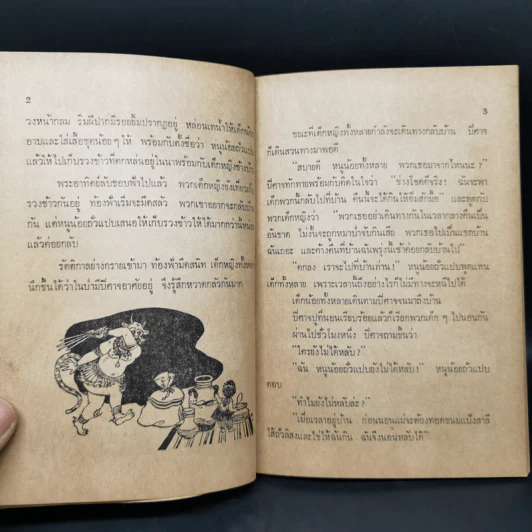 2
วงหน้ากลม ริมฝีปากมีรอยยิ้มปรากฏอยู่ หล่อนเทน้ำให้เด็กน้อย
อาบและใส่เสื้อชุดน้อยๆ ให้ พร้อมกับตั้งชื่อว่า หนูน้อยถั่วแปบ
แล้วให้ไปเก็บรวงข้าวที่ตกหล่นอยู่ในนาพร้อมกับเด็กหญิงข้างบ้าน
พระอาทิตย์ลับขอบฟ้าไปแล้ว พวกเด็กหญิงยังเที่ยว
รวงข้าวกันอยู่ ท้องฟ้าเริ่มจะมืดสลัว พวกเขาอยากจะกลับบ้าน
กัน แต่หนูน้อยถั่วแปบเสนอให้เก็บรวงข้าวให้ได้มากกว่านี้
แล้วค่อยกลับ
รัตติกาลย่างกรายเข้ามา ท้องฟ้ามืดสนิท เด็กหญิงทั้ง
นึกขึ้นได้ว่าในป่ามีปีศาจอาศัยอยู่ จึงรู้สึกหวาดกลัวกันมาก
3
ขณะที่เด็กหญิงทั้งหลายกำลังจะเดินทางกลับบ้าน ปีศาจ
ก็เดินสวนทางมาพอดี
"สบายดี หนูน้อยทั้งหลาย พวกเธอมาจากไหนนะ?"
ปีศาจทักทายพร้อมกับคิดในใจว่า "ช่างโชคดีจริง! ฉันจะพา
เด็กพวกนี้กลับไปที่บ้าน คืนนี้จะได้กินให้อิ่มสักมื้อ" และพูดกับ
พวกเด็กหญิงว่า "พวกเธออย่าเดินทางกันในเวลากลางคืนเป็น
อันขาด ไม่งั้นจะถูกหมาป่าจับกินเสีย พวกเธอไปเป็นแขกบ้าน
ฉันเถอะ และค้างคืนที่บ้านฉันพรุ่งนี้เช้าค่อยกลับบ้านไป"
"ตกลง เราจะไปที่บ้านท่าน!" หนูน้อยถั่วแปบพูดแทน
เด็กทั้งหลาย เพราะเวลานี้ถึงอย่างไรก็ไม่มีทางจะหนีไปได้
เด็กน้อยทั้งหลายเดินตามปีศาจจนมาถึงบ้าน
ปีศาจปูที่นอนเรียบร้อยแล้วก็เรียกพวกเด็กๆ ไปนอนกัน
ผ่านไปชั่วโมงหนึ่ง ปีศาจถามขึ้นว่า
"ใครยังไม่ได้หลับ?"
"ฉัน หนูน้อยถั่วแปบยังไม่ได้หลับ!" หนูน้อยถั่วแปบ
ตอบ
"ทำไมยังไม่หลับล่ะ?"
"เมื่อเวลาอยู่บ้าน ก่อนนอนแม่จะต้องทอดขนมแป้งสาลี
ใส่ถั่วลิสงและไข่ให้ฉันกิน ฉันจึงนอนหลับได้"